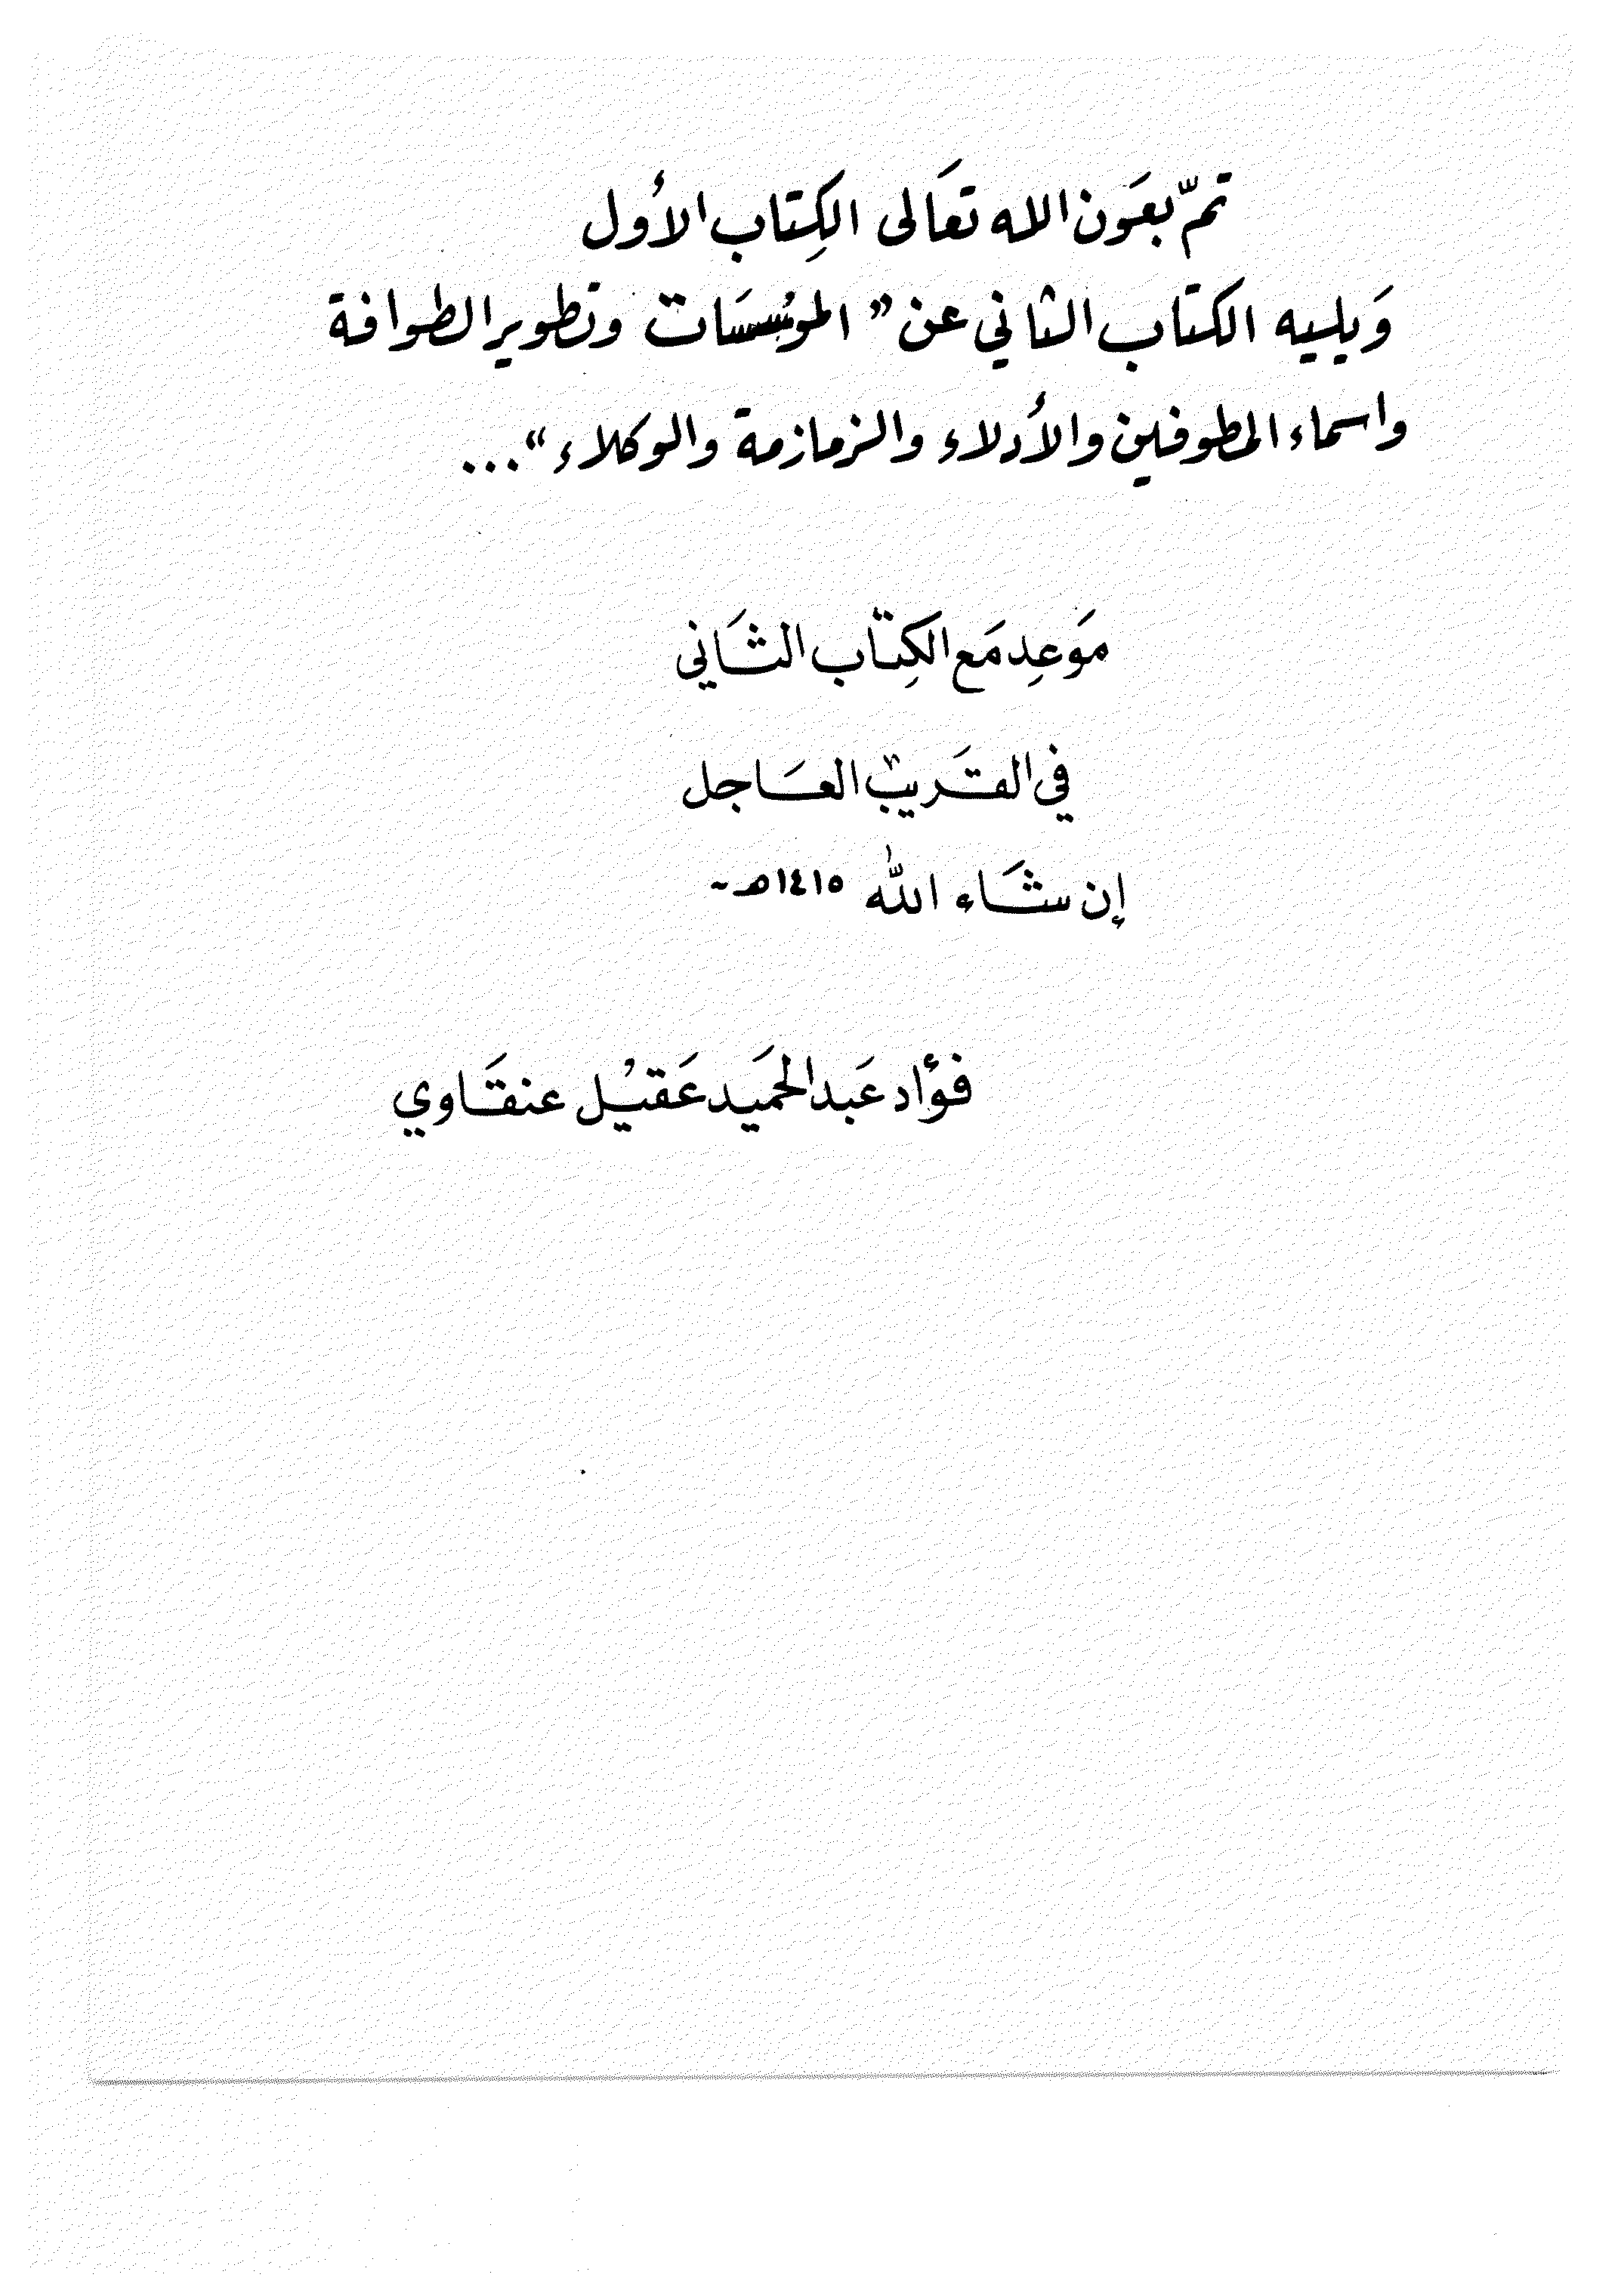 تمّ بعَون الله تعَالى الكِتاب الأول
وَيليه الكتاب الثاني عن " المؤسسَات وتطوير الطوافة
واسماء المطوفين والأدلاء والزمازمة والوكلاء "...
مَوعِد مَع الكِتاب الثَاني
في القَريب العَاجل
إن شَاء الله ١٤١٥هـ ~
فؤاد عَبد الحَميد عَقيل عنقَاوي